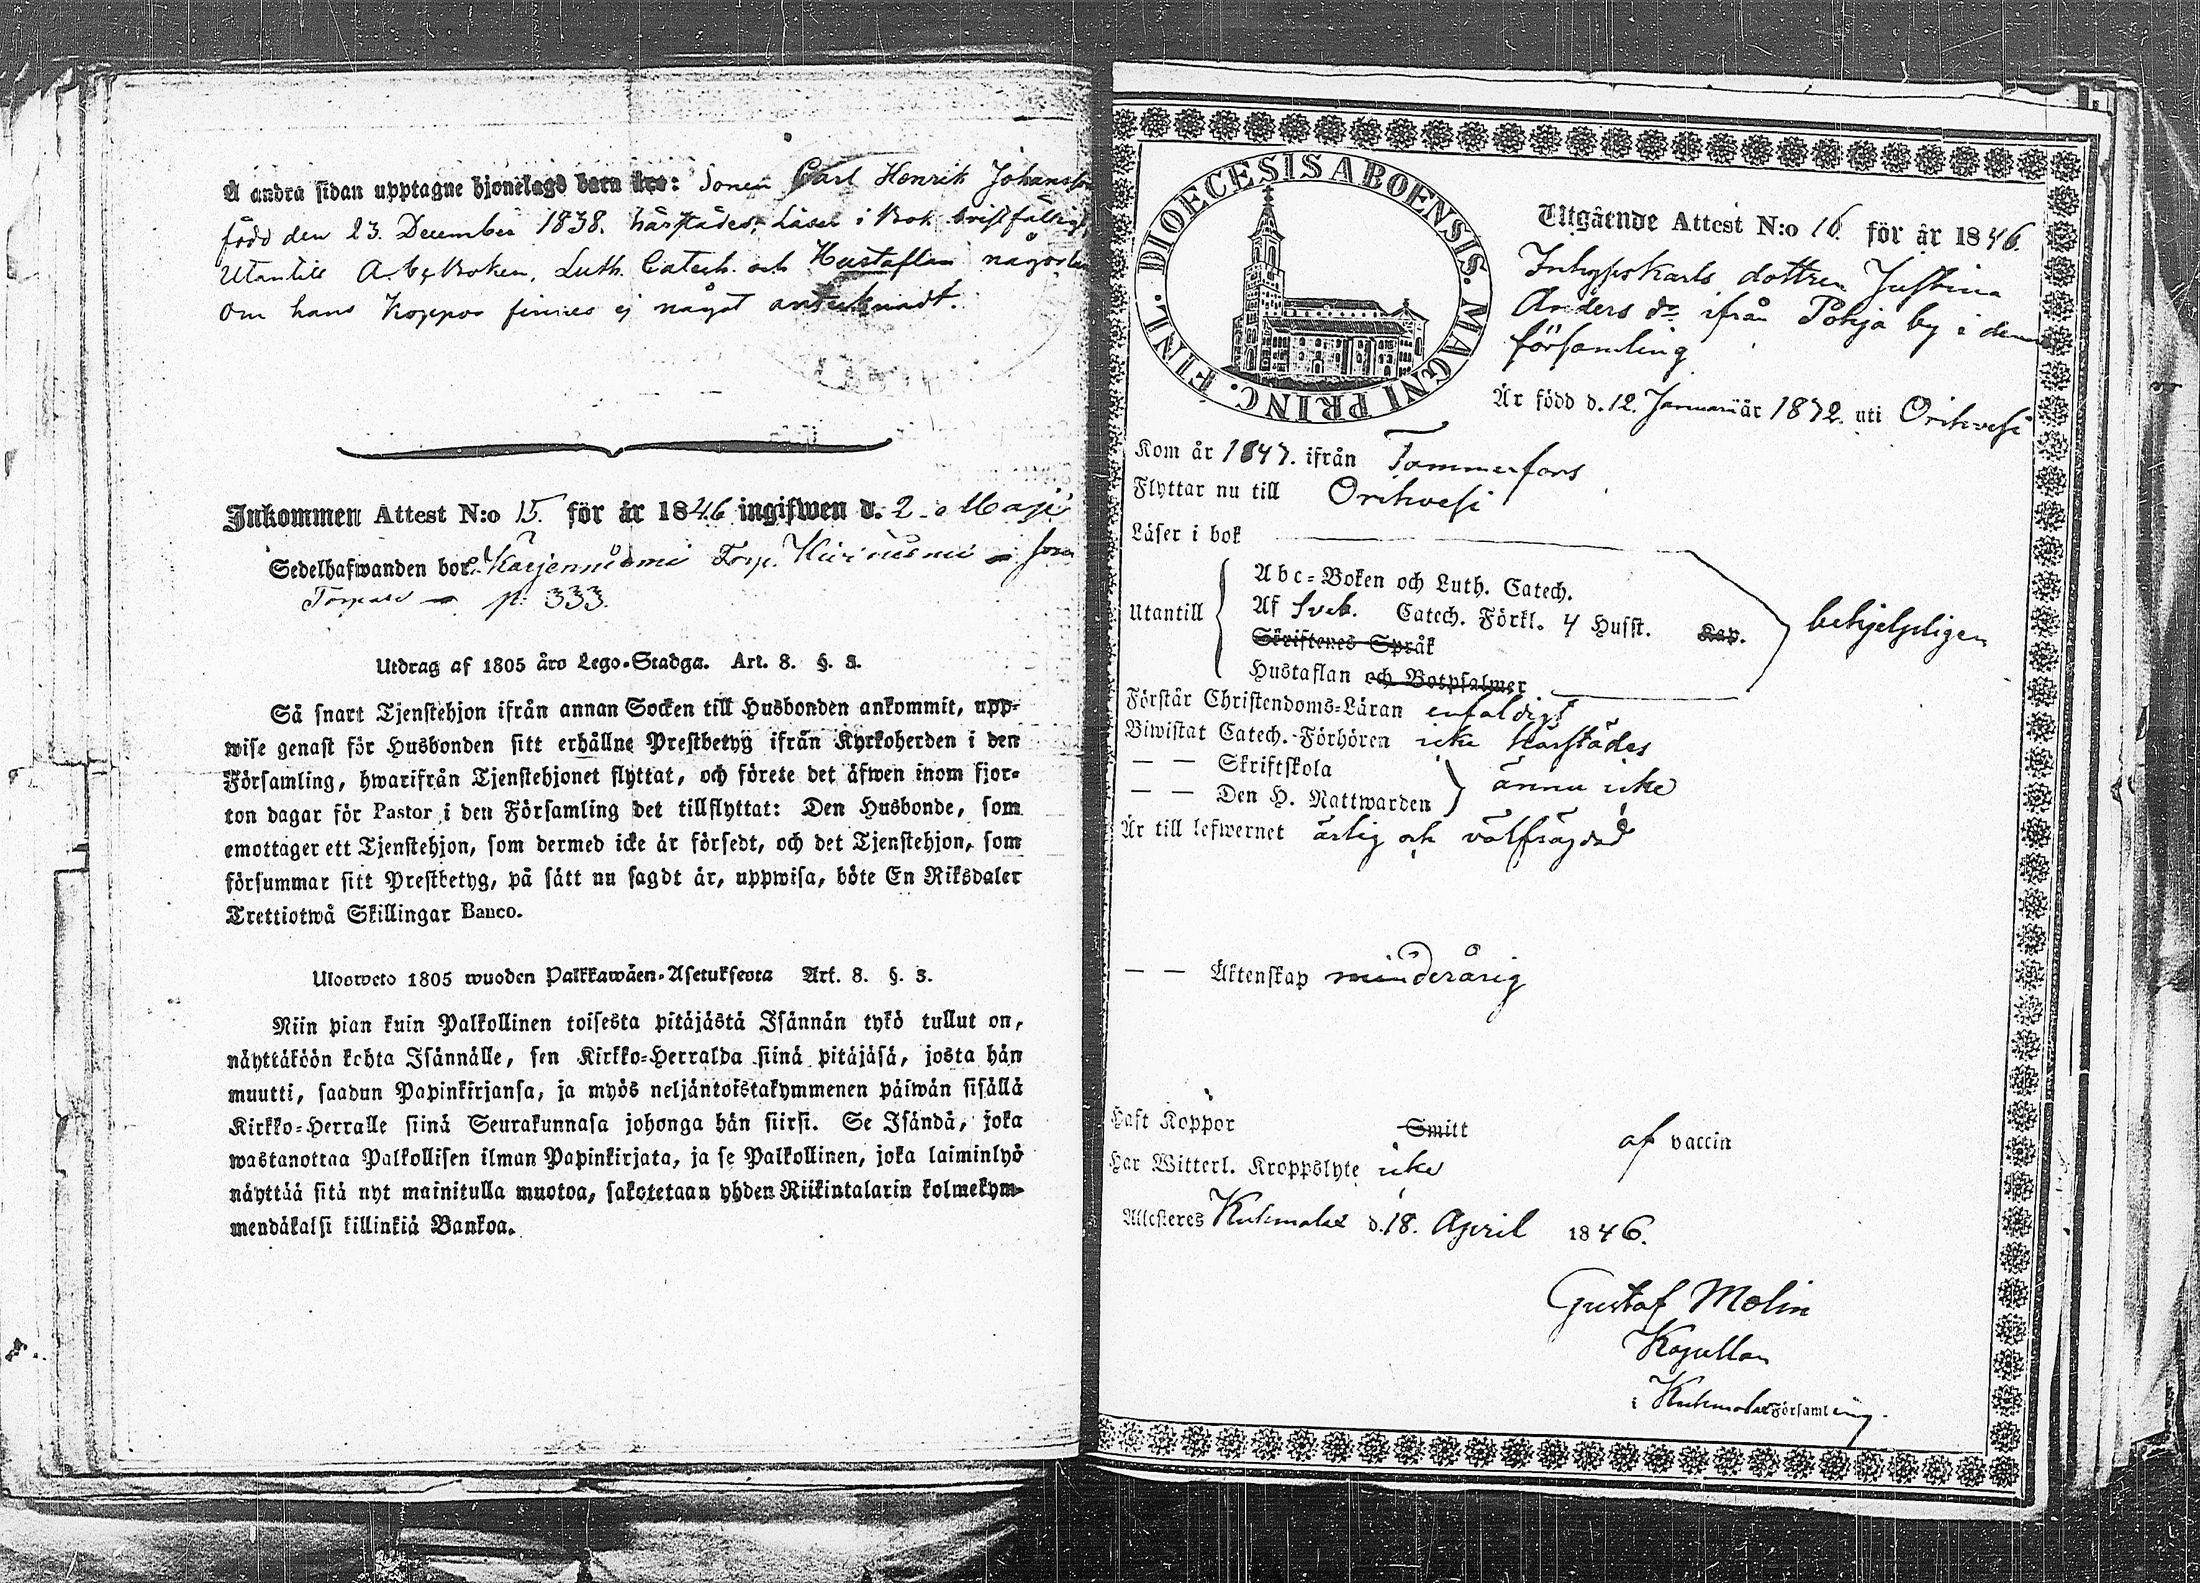 Å andra sidan upptagne hjonelags barn äro: Sonen Carl Henrik Johansson
född den 23. December 1838. härstädes, Läser i Bok bristfälligt,
Utantill A.b.c. Boken, Luth. Catech. och Hustaflan någorlu
Om hans Koppor finnes ej något antecknadt.
Inkommen Attest N:o 15. för år 1846 ingifwen d. 2. Maji
Sedelhafwanden bor Torp.
p. 333.
Utdrag af 1805 års Lego-Stadga. Art. 8. §. 3.
Så snart Tjenstehjon ifrån annan Socken till Husbonden ankommit, upp-
wise genast för Husbonden sitt erhållne Prestbetyg ifrån Kyrkoherden i den
Församling, hwarifrån Tjenstehjonet flyttat, och förete det äfwen inom fjor-
ton dagar för Pastor i den Församling det tillflyttat: Den Husbonde, som
emottager ett Tjenstehjon, som dermed icke är försedt, och det Tjenstehjon, som
försummar sitt Prestbetyg, på sätt nu sagdt är, uppwisa, böte En Riksdaler
Trettiotwå Skillingar Banco.
Ulosweto 1805 wuoden Palkkawäen-Asetuksesta Art. 8. §. 3.
Niin pian kuin Palkollinen toisesta pitäjästä Isännän tykö tullut on,
näyttäköön kohta Isännälle, sen Kirkko-Herralda siinä pitäjäsä, josta hän
muutti, saadun Papinkirjansa, ja myös neljäntoistakymmenen päiwän sisällä
Kirkko-Herralle siinä Seurakunnasa johonga hän siirsi. Se Isändä, joka
wastanottaa Palkollisen ilman Papinkirjata, ja se Palkollinen, joka laiminlyö
näyttää sitä nyt mainitulla muotoa, sakotetaan yhden Riikintalarin kolmekym-
mendäkaksi killinkiä Bankoa.
DIOECESIS ABOENSIS. MAGNI PRINC. FINL.
Utgående Attest N:o 16. för år 1846.
Inhyseskarls dottren Justina
Anders dr. ifrån Pohja by i denna
församling
Är född d. 12. Januarii år 1832. uti Orihvesi
Kom år 1847. ifrån Tammerfors
Flyttar nu till Orihvesi
Läser i bok
Utantill
Abc-Boken och Luth. Catech.
Af Sveb. Catech. Förkl. 4 Husst. Kap.
Skriftenes Språk
Hustaflan och Botpsalmer
behjelpligen
Förstår Christendoms-Läran enfaldigt
Biwistat Catech.-Förhören icke härstädes
— — Skriftskola
— — Den H. Nattwarden
ännu icke
Är till lefwernet ärlig och välfrägdad
— — Äktenskap minderårig
Haft Koppor Smitt af vaccin
Har Witterl. Kroppslyte icke
Attesteres Kuhmalax d. 18. April 1846.
Gustaf Molin
Kapellan
i Kuhmalax Församling.